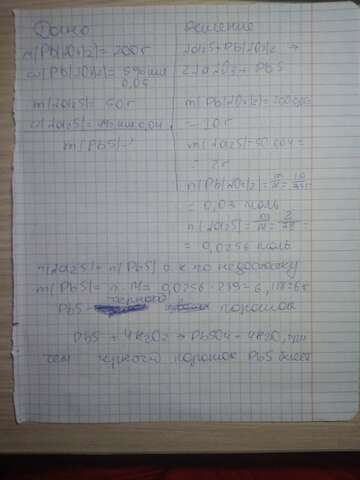 Дано
m(Pb(NO3)2) = 200г
w(Pb(NO3)2) = 5% или 0,05
m(Na2S) = 50г
w(Na2S) = 4% или 0,04
m(PbS) - ?
Решение
Na2S + Pb(NO3)2 →
2NaNO3 + PbS
m(Pb(NO3)2) = 200·0,05
= 10г
m(Na2S) = 50·0,04 =
= 2г
n(Pb(NO3)2) = m/M = 10/331
= 0,03 моль
n(Na2S) = m/M = 2/78 =
= 0,0256 моль
n(Na2S) = n(PbS) т.к по недостатку
m(PbS) = n·M = 0,0256·239 = 6,1
PbS - черный порошок
PbS + 4H2O2 → PbSO4 + 4H2O, при
чем черного порошок PbS